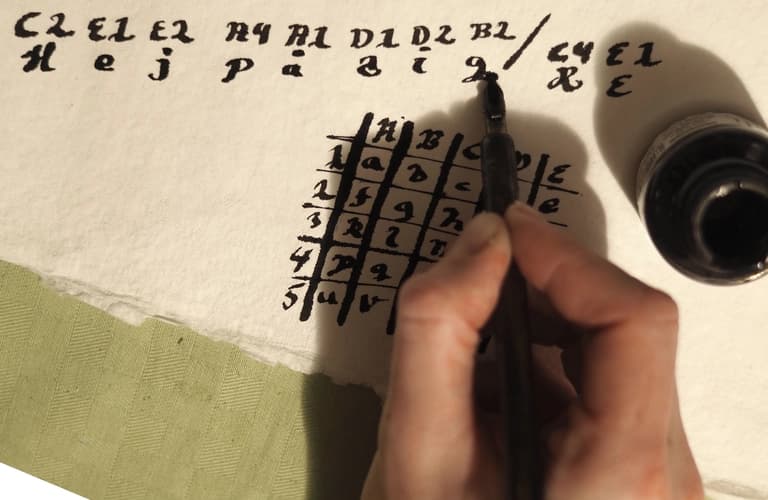 C2 E1 E2 A4 A1 D1 D2 B2 / C4 E1
H e j p å d i g R E
A B C D E
1 a b c e
2 f g h
3 k l m
4 p q
5 u v